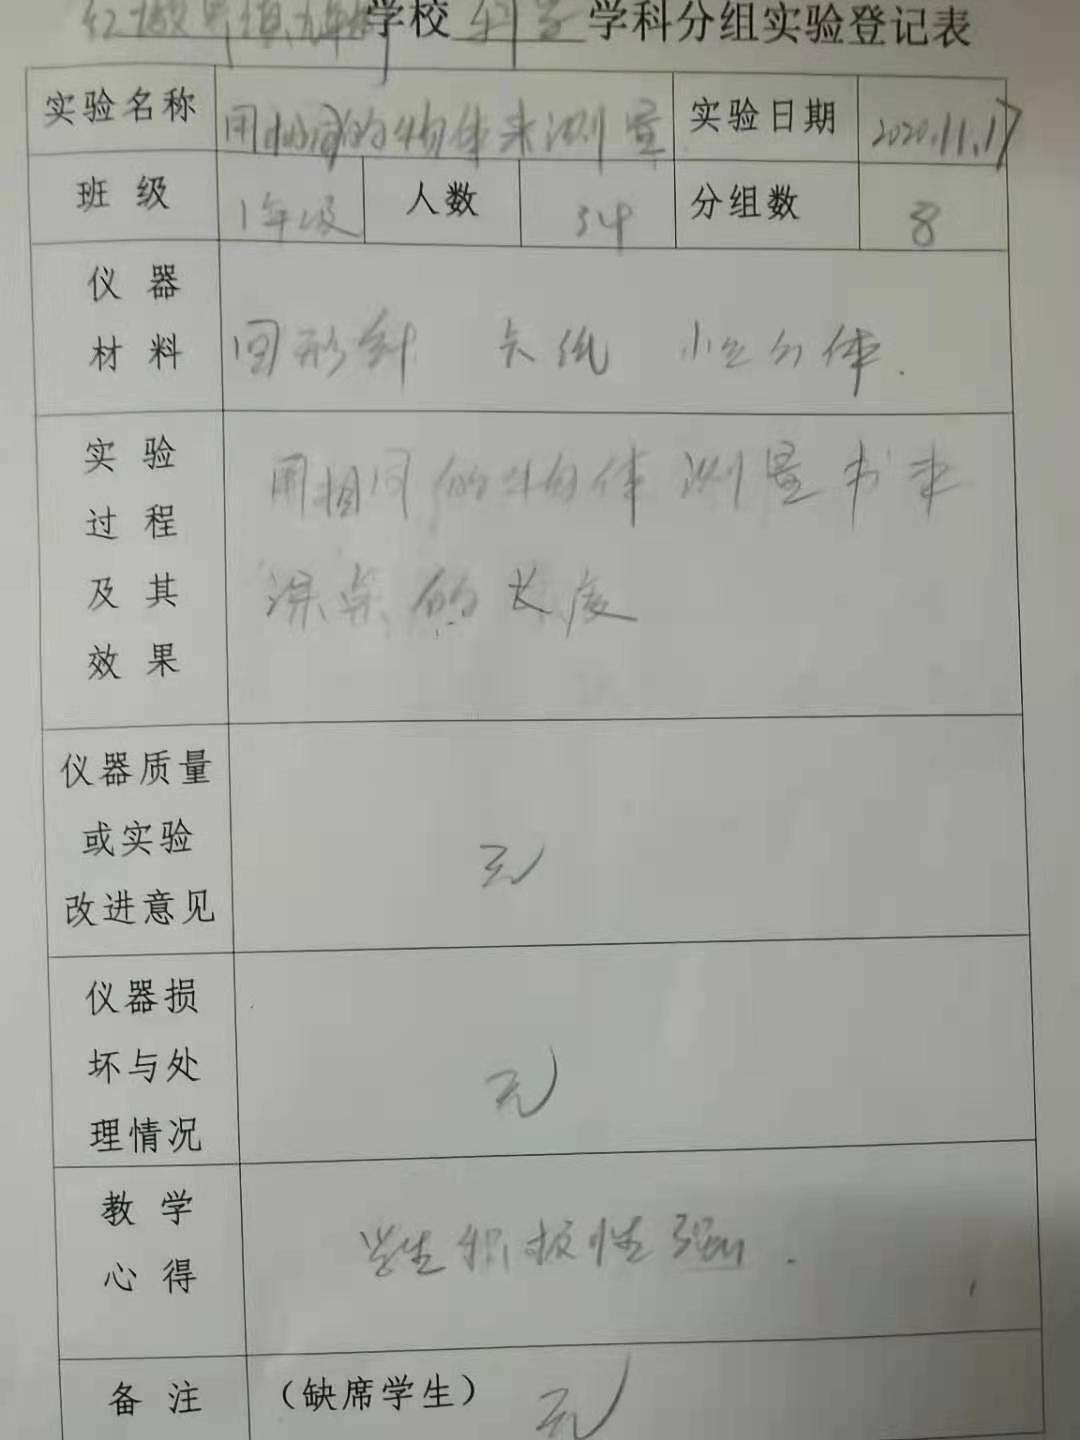 学校 科学 学科分组实验登记表
实验名称 用相同的物体来测量 实验日期 2020.11.17
班级 1年级 人数 34 分组数 8
仪器
材料
回形针 卡纸 小立方体.
实验
过程
及其
效果
用相同的物体测量书本
课桌的长度
仪器质量
或实验
改进意见
无
仪器损
坏与处
理情况
无
教学
心得
学生积极性强.
备注 (缺席学生) 无